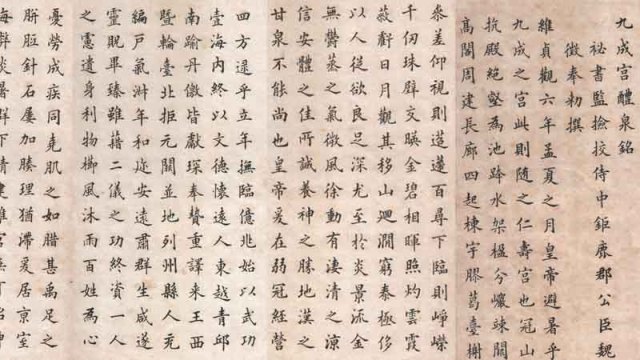 九成宮醴泉銘
祕書監撿挍侍中鉅鹿郡公臣魏
徵奉勑撰
維貞觀六年孟夏之月皇帝避暑乎
九成之宮此則隨之仁壽宮也冠山
抗殿絕壑為池跨水架楹分巖竦闕
高閣周建長廊四起棟宇膠葛臺榭
參差仰視則迢遰百尋下臨則崢嶸
千仞珠壁交暎金碧相暉照灼雲霞
蔽虧日月觀其移山迴澗窮泰極侈
以人從欲良足深尤至於炎景流金
無鬱蒸之氣微風徐動有淒清之涼
信安體之佳所誠養神之勝地漢之
甘泉不能尚也皇帝爰在弱冠經營
四方逮乎立年撫臨億兆始以武功
壹海內終以文德懷遠人東越青邱
南踰丹徼皆獻琛奉贄重譯來王西
暨輪臺北拒元闕並地列州縣人充
編戶氣淑年和迩安遠肅群生咸遂
靈貺畢臻雖藉二儀之功終資一人
之慮遺身利物櫛風沐雨百姓為心
憂勞成疾同堯肌之如腊甚禹足之
胼胝針石屢加腠理猶滯爰居京室
弊炎暑群下請